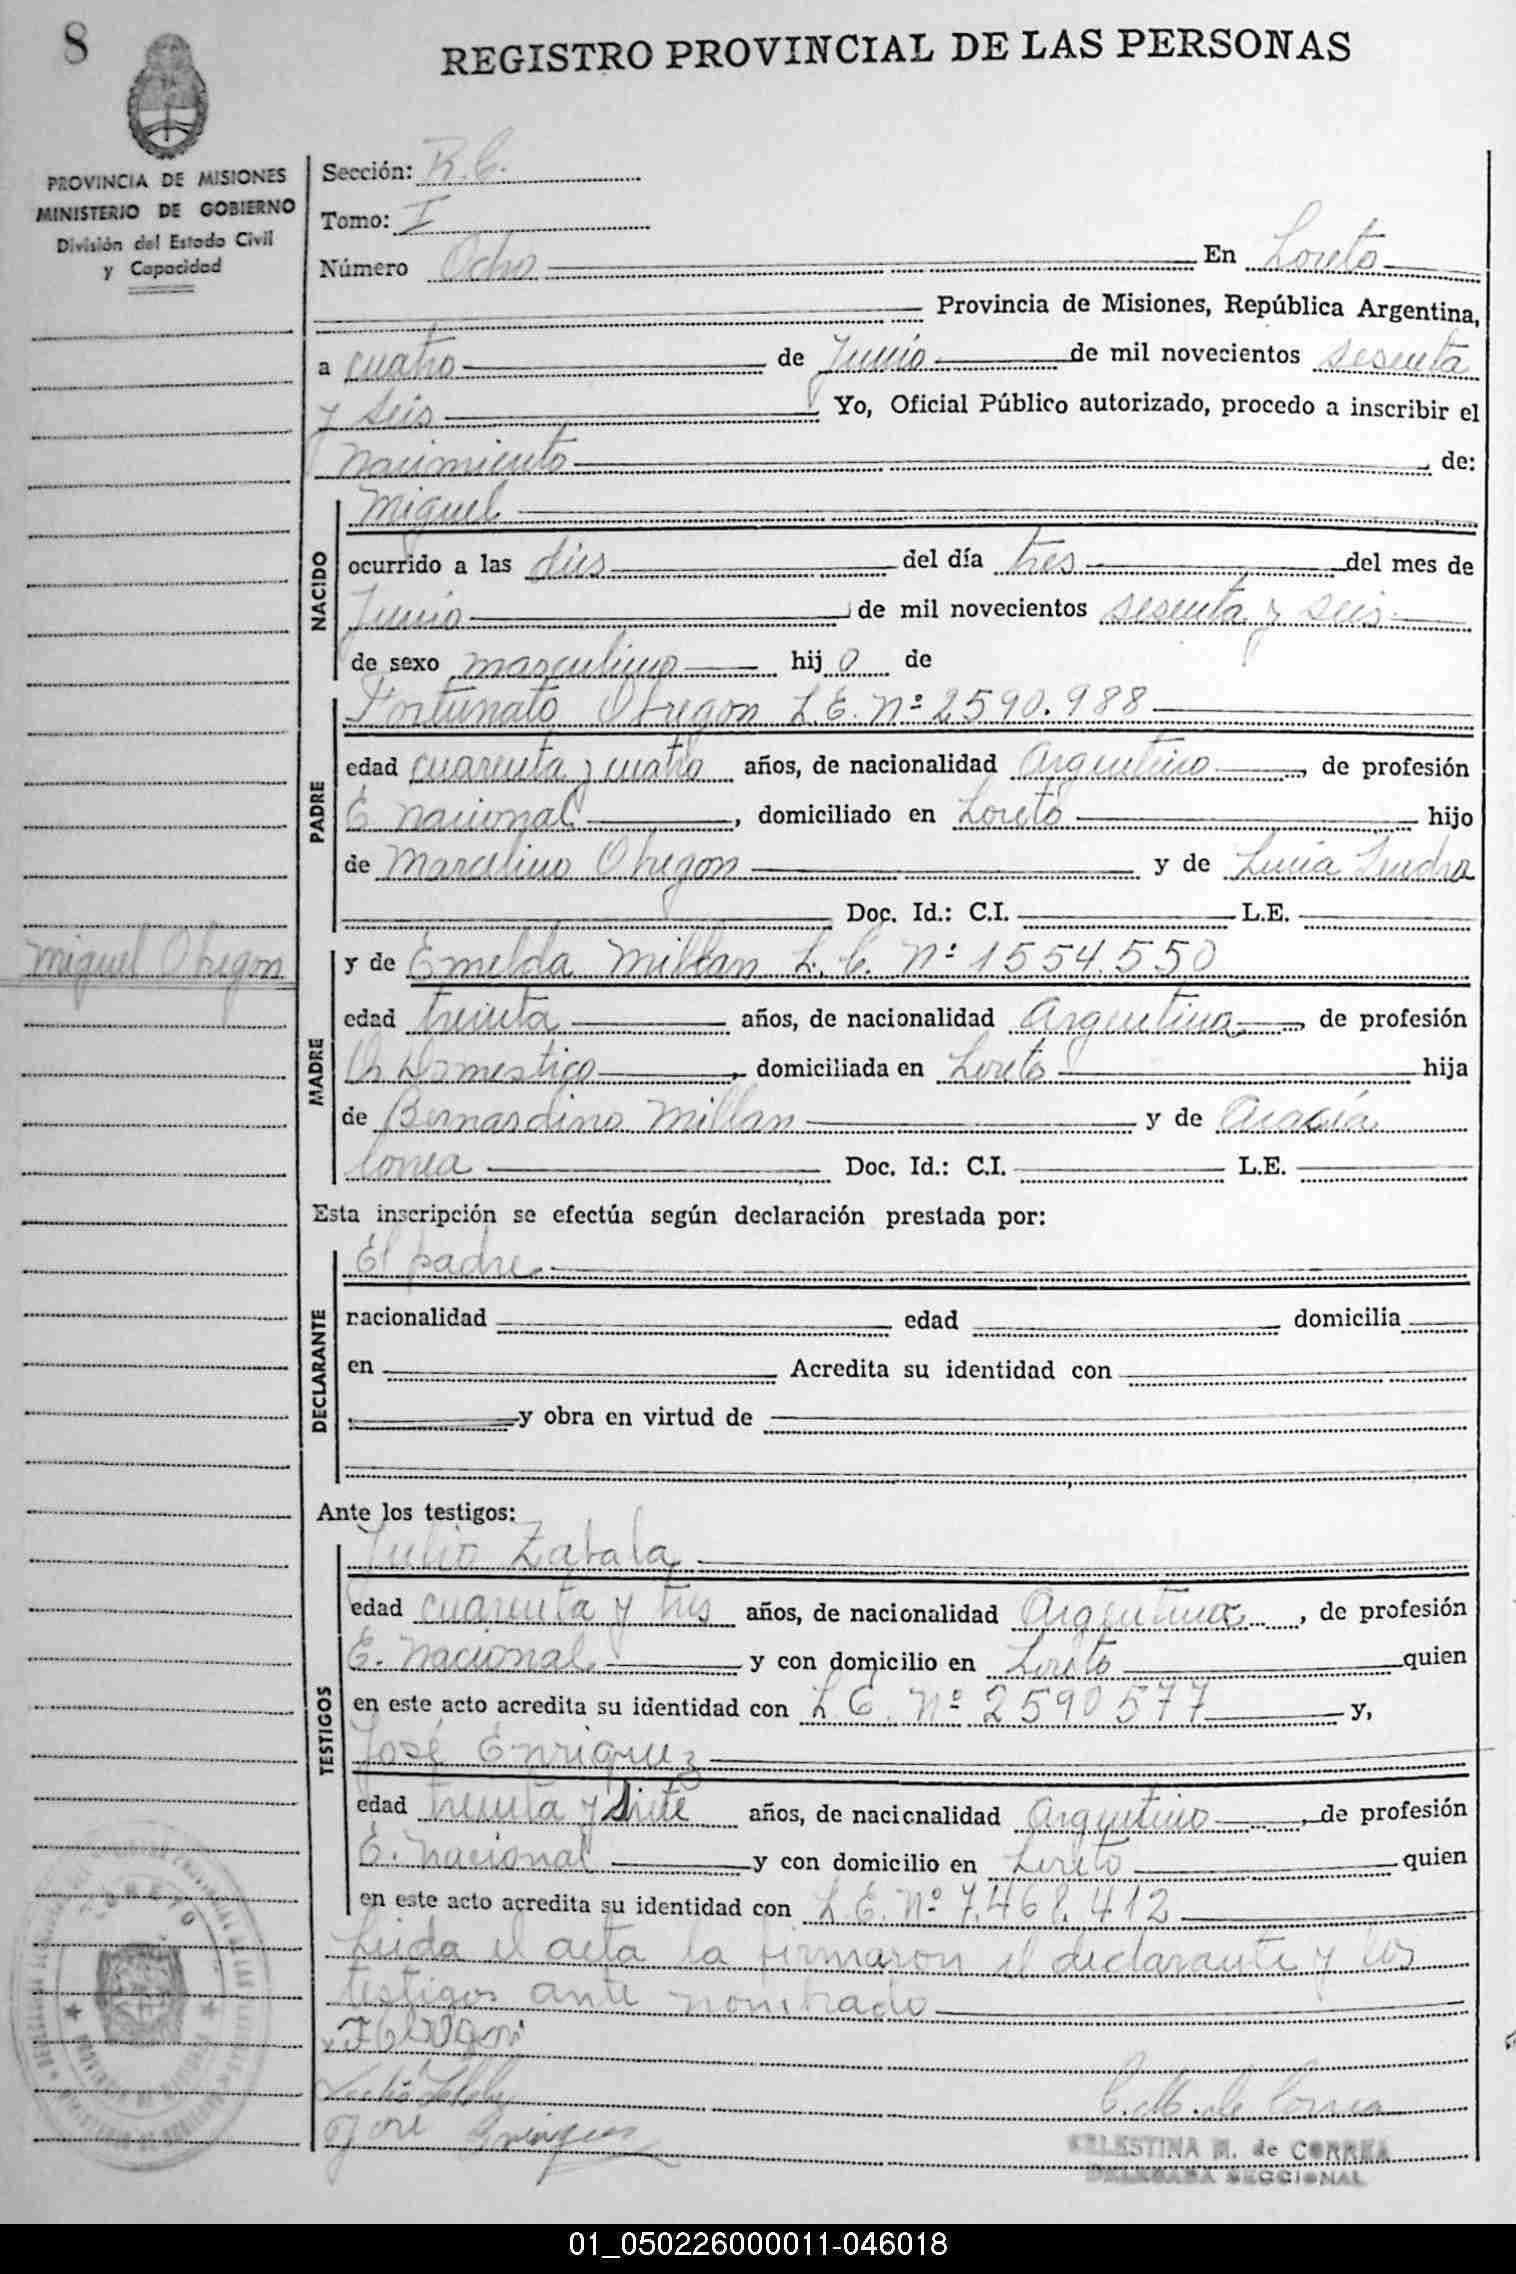 8
REGISTRO PROVINCIAL DE LAS PERSONAS
PROVINCIA DE MISIONES
MINISTERIO DE GOBIERNO
División del Estado Civil
y Capacidad
Sección: R.C.
Tomo: I
Número Ocho En Loreto
Provincia de Misiones, República Argentina,
a cuatro de Junio de mil novecientos sesenta
y seis Yo, Oficial Público autorizado, procedo a inscribir el
nacimiento de:
NACIDO
Miguel
ocurrido a las dies del día tres del mes de
Junio de mil novecientos sesenta y seis
de sexo masculino hijo de
PADRE
Fortunato Obregon L.E. Nº 2590.988
edad cuarenta y cuatro años, de nacionalidad Argentino, de profesión
E nacional, domiciliado en Loreto hijo
de Marcelino Obregon y de Lucia
Doc. Id.: C.I. L.E.
Miguel Obregon
MADRE
y de Emelda Millan L.C. Nº 1554.550
edad treinta años, de nacionalidad Argentina, de profesión
Domestico, domiciliada en Loreto hija
de Bernardino Millan y de Acacia
Correa Doc. Id.: C.I. L.E.
Esta inscripción se efectúa según declaración prestada por:
DECLARANTE
El padre
nacionalidad edad domicilia
en Acredita su identidad con
y obra en virtud de
Ante los testigos:
TESTIGOS
Julio Zabala
edad cuarenta y tres años, de nacionalidad Argentina, de profesión
E. nacional y con domicilio en Loreto quien
en este acto acredita su identidad con L.E. Nº 2590577 y,
José Enriquez
edad treinta y siete años, de nacionalidad Argentino, de profesión
E. nacional y con domicilio en Loreto quien
en este acto acredita su identidad con L.E. Nº 7.468.412
Leida el acta la firmaron el declarante y los
testigos ante nombrado
LORETO
José Enriquez
C. M. de Correa
CELESTINA M. de CORREA
DELEGADA SECCIONAL
01_050226000011-046018